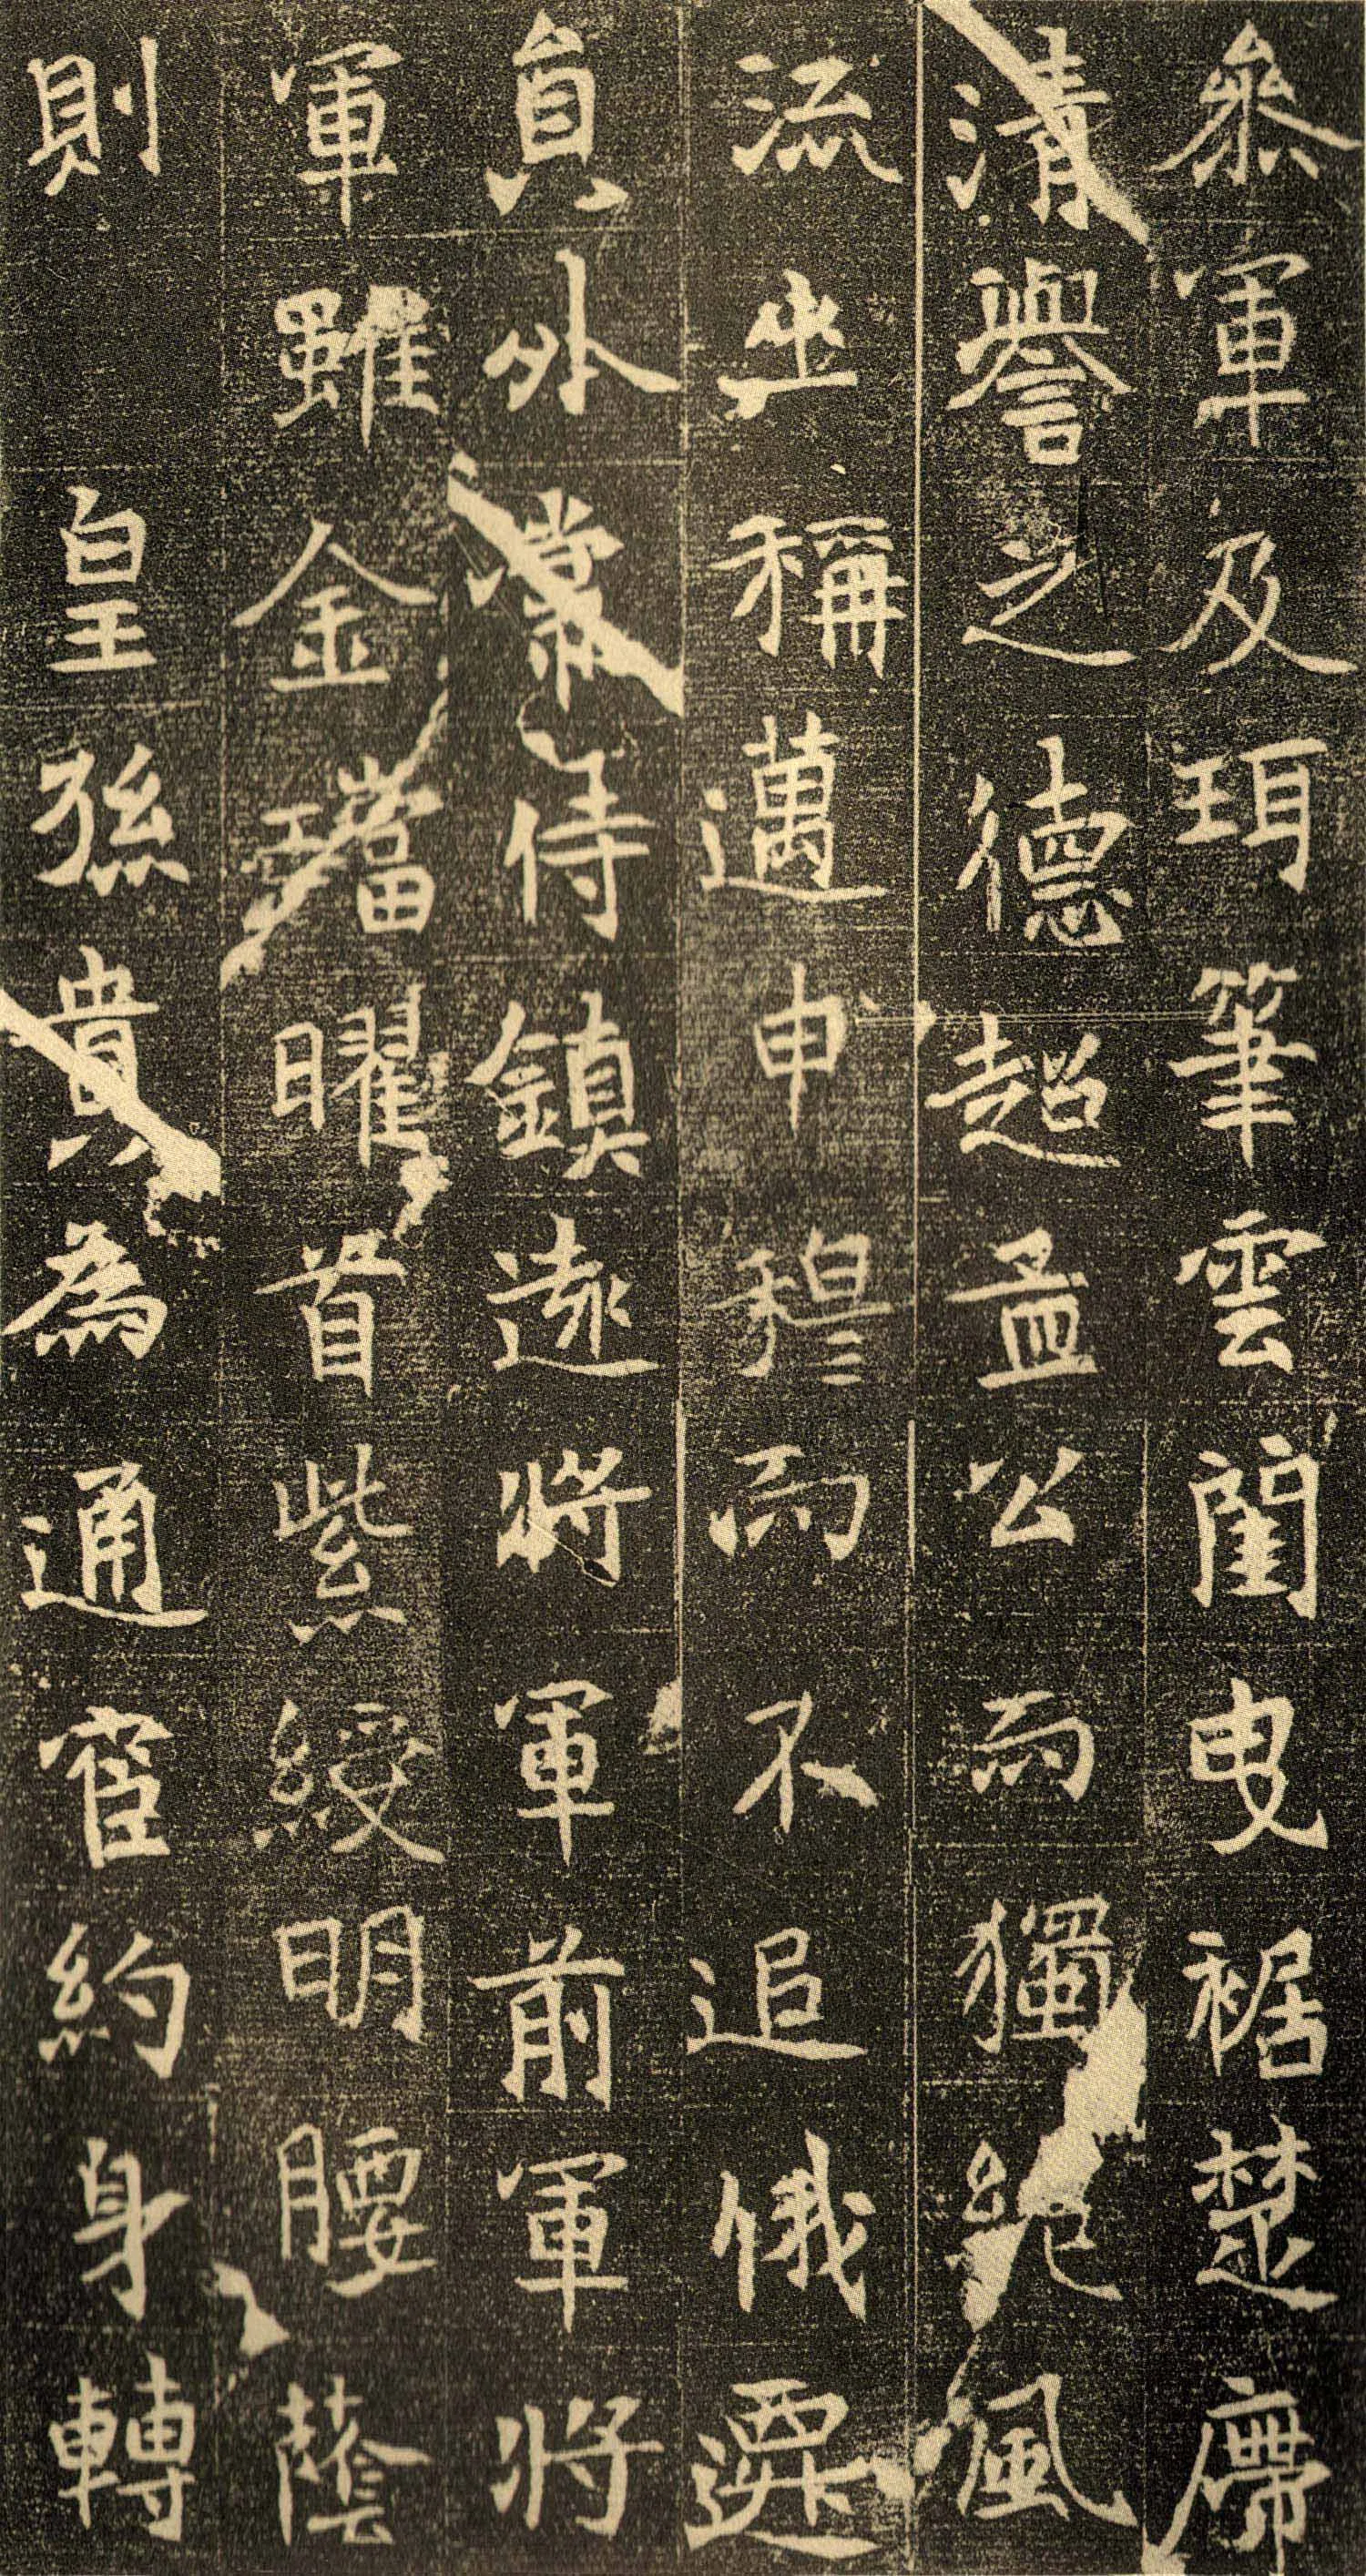 參軍及珥筆雲閨曳裾楚廗
清譽之德超孟公而獨絕風
流坐稱邁申穆而不追俄遷
員外常侍鎮遠將軍前軍將
軍雖金璫曜首紫綬明腰蔭
則　皇孫貴為通官約身轉